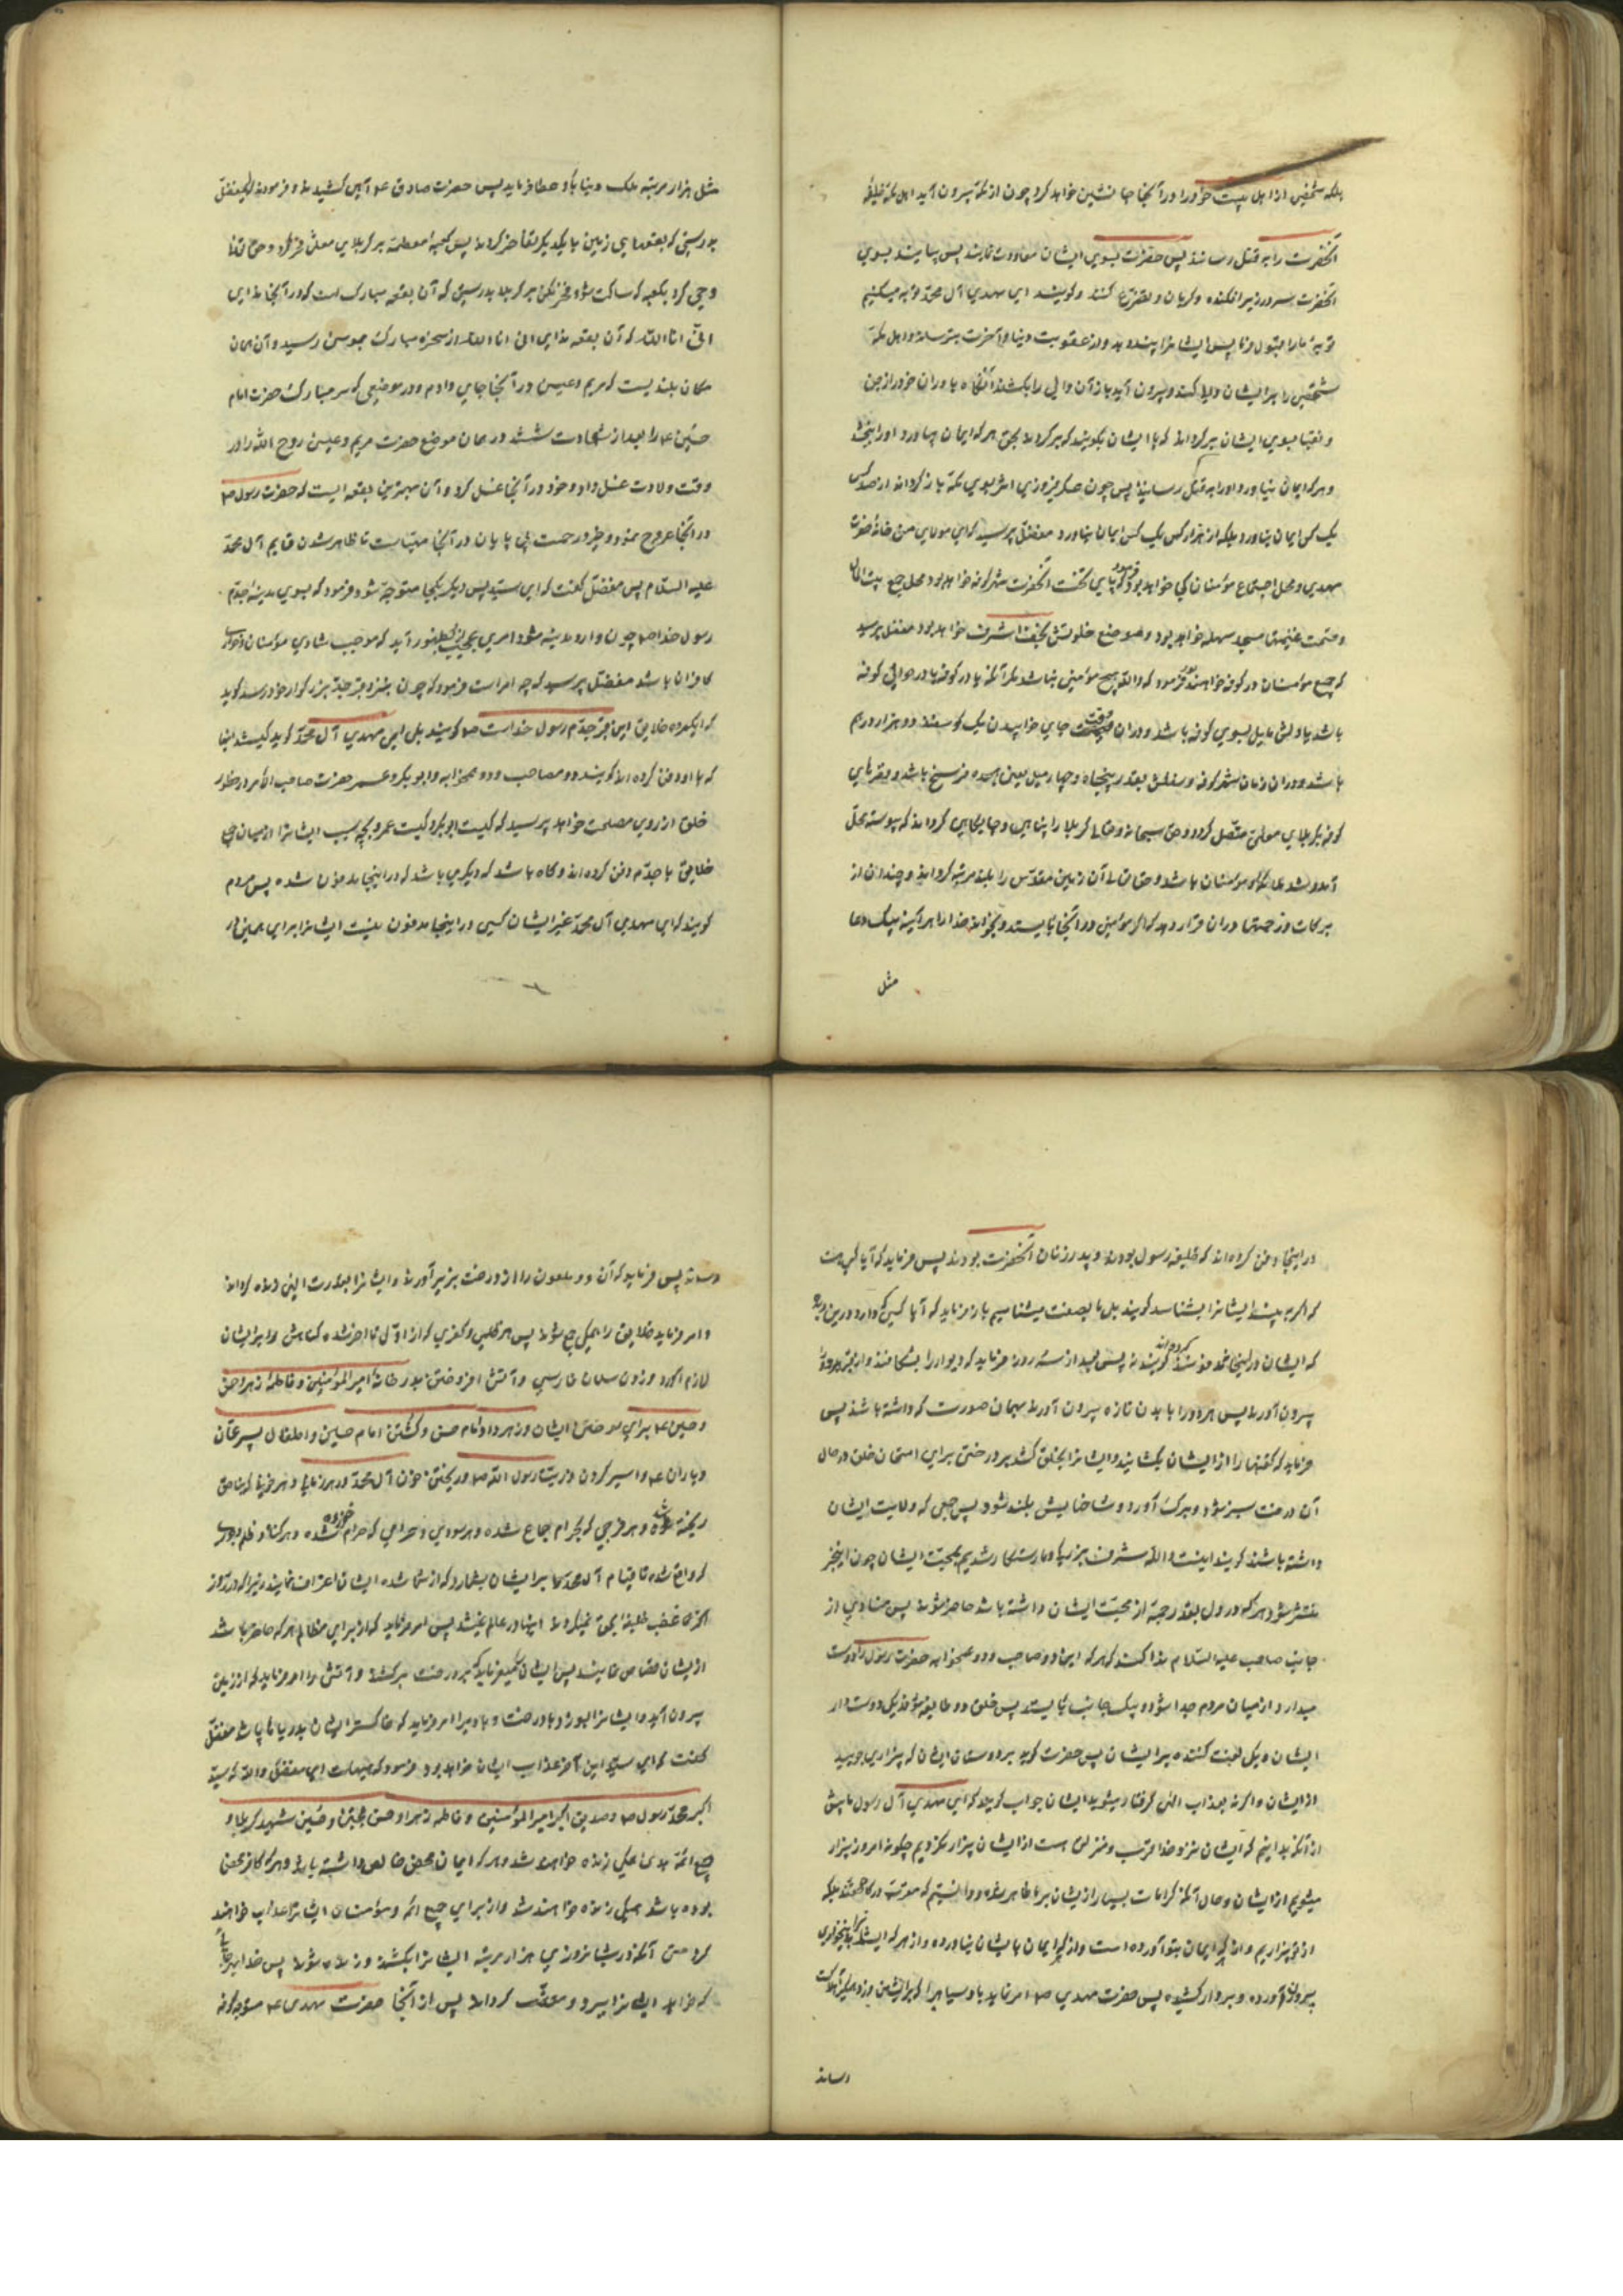 بلکه شخصی از اهل بیت خود را در آنجا جانشین خواهد کرد چون از مکه بیرون آید اهل مکه خلیفه
آنحضرت را به قتل رسانند پس حضرت بسوی ایشان معاودت نمایند پس بیایند بسوی
آنحضرت سر در زیر افکنده و گریان و تضرع کنند و گویند ای مهدی آل محمد توبه میکنیم
توبهٔ ما را قبول فرما پس ایشانرا پند دهد و از عقوبت دنیا و آخرت بترساند و از اهل مکه
شخصی را بر ایشان والی کند و بیرون آید باز آن والی را بکشند آنگاه یاوران خود را از جن
و نقبا بسوی ایشان برگرداند که با ایشان بگویند که برگردند بحق هر که ایمان بیاورد او را ببخشد
و هر که ایمان نیاورد او را به قتل رسانید پس چون عسکر فیروزی اثر بسوی مکه بازگردند از صد کس
یک کس ایمان نیاورد بلکه از هزار کس یک کس ایمان نیاورد مفضل پرسید که ای مولای من خانهٔ حضرت
مهدی و محل اجتماع مؤمنان کجا خواهد بود فرمود که پای تخت آنحضرت شهر کوفه خواهد بود و محل جمع بیت المال
و قسمت غنیمتها مسجد سهله خواهد بود و موضع خلوتش نجف اشرف خواهد بود مفضل پرسید
که جمیع مؤمنان در کوفه خواهند بود فرمود که والله هیچ مؤمنی نباشد مگر آنکه یا در کوفه یا در حوالی کوفه
باشد یا دلش مایل بسوی کوفه باشد و در آن وقت جای خوابیدن یک گوسفند دو هزار درهم
باشد و در آن زمان شهر کوفه وسعتش بقدر پنجاه و چهار میل یعنی هجده فرسخ باشد و قصرهای
کوفه بکربلای معلی متصل گردد و حق سبحانه و تعالی کربلا را پناهی و جایگاهی گرداند که پیوسته محل
آمد و شد ملائکه و مؤمنان باشد و حق تعالی آن زمین مقدس را بلند مرتبه گرداند و چندان از
برکات و رحمتها در آن قرار دهد که اگر مؤمنی در آنجا بایستد و بخواند خدا را هر آینه بیک دعا
مثل
مثل هزار مرتبه ملک دنیا باو عطا فرماید پس حضرت صادق ع آهی کشیدند و فرمودند ای مفضل
بدرستی که بقعهای زمین با یکدیگر تفاخر کردند پس کعبهٔ معظمه بر کربلای معلی فخر کرد و حق تعالی
وحی کرد بکعبه که ساکت شو و فخر مکن بر کربلا بدرستی که آن بقعه مبارکست که در آنجا ندای
انی انا الله که آن بقعه ندای انی انا الله از شجرهٔ مبارک بموسی رسید و آن همان
مکان بلندیست که مریم و عیسی در آنجا جای دادم و در موضعی که سر مبارک حضرت امام
حسین ع را بعد از شهادت شستند در همان موضع حضرت مریم و عیسی روح الله را در
وقت ولادت غسل داد و خود در آنجا غسل کرد و آن بهترین بقعه ایست که حضرت رسول ص
در آنجا عروج نمود و خیر و رحمت بی پایان در آنجا مهیاست تا ظاهر شدن قایم آل محمد
علیه السلام پس مفضل گفت که ای سید پس دیگر بکجا متوجه شود فرمود که بسوی مدینهٔ جدم
رسول خدا ص چون وارد مدینه شود امری عجیب بظهور آید که موجب شادی مؤمنان و خواری
کافران باشد مفضل پرسید که چه امر است فرمود که چون بنزد قبر جد بزرگوار خود رسد گوید
که ای گروه خلایق این قبر جدم رسول خداست ص گویند بلی ای مهدی آل محمد گوید کیستند اینها
که با او دفن کرده اند گویند دو مصاحب و دو همخوابه او ابوبکر و عمر حضرت صاحب الامر در حضور
خلق از روی مصلحت خواهد پرسید که کیست ابوبکر و کیست عمر و بچه سبب ایشانرا از میان جمیع
خلایق با جدم دفن کرده اند و گاه باشد که دیگری باشد که در اینجا مدفون شده پس مردم
گویند که ای مهدی آل محمد غیر ایشان کسی در اینجا مدفون نیست ایشانرا برای همین
در اینجا دفن کرده اند که خلیفهٔ رسول بودند و پدر زنان آنحضرت بودند پس فرماید که آیا کسی هست
که اگر به بیند ایشانرا بشناسد گویند بلی ما بصفت میشناسیم باز فرماید که آیا کسی شک دارد درین
که ایشان در اینجا مدفونند گویند نه پس بعد از سه روز فرماید که دیوار را بشکافند و از قبر هر دو را
بیرون آورند پس هر دو را با بدن تازه بیرون آورند بهمان صورت که داشته باشند پس
فرماید که کفنها را از ایشان بکشانند و ایشانرا بحلق کشند بر درختی برای امتحان خلق در حال
آن درخت سبز شود و برگ آورد و شاخهایش بلند شود پس جمعی که ولایت ایشان
داشته باشند گویند اینست والله شرف بزرگ و ما رستگار شدیم بمحبت ایشان چون این خبر
منتشر شود هر که در دل بقدر حبهٔ از محبت ایشان داشته باشد حاضر شود پس منادی از
جانب صاحب علیه السلام ندا کند که هر که این دو صاحب و دو همخوابه حضرت رسول را دوست
میدارد از میان مردم جدا شود و بیک جانب بایستد پس خلق دو طایفه شوند یکی دوستدار
ایشان و یکی لعنت کننده بر ایشان پس حضرت گوید بر دوستان ایشان که بیزاری جویید
از ایشان و اگر نه بعذاب الهی گرفتار میشوید ایشان جواب گویند که ای مهدی آل رسول ما پیش
از آنکه بدانیم که ایشان نزد خدا قرب و منزلتی هست از ایشان بیزار نکردیم چگونه امروز بیزار
میشویم از ایشان و حال آنکه کرامات بسیار از ایشان بر ما ظاهر شد و دانستیم که مقرب درگاه حقند بلکه
از تو بیزاریم و از هر که ایمان بتو آورده است و از هر که ایمان بایشان نیاورده و از هر که ایشانرا بدین خواری
بیرون آورده و بر دار کشیده پس حضرت مهدی ص امر نماید باد سیاهیرا که بر ایشان وزد و همگی را بهلاکت
رساند
رساند پس فرماید که آن دو ملعون را از درخت بزیر آورند و ایشانرا بقدرت الهی زنده گرداند
و امر فرماید خلایق را همگی جمع شوند پس هر ظلمی و کفری که از اول تا آخر شده گناهش را بر ایشان
لازم آورد و زدن سلمان فارسی و آتش افروختن بدر خانهٔ امیرالمؤمنین و فاطمهٔ زهرا و حسن
و حسین ع برای سوختن ایشان و زهر دادن امام حسن و کشتن امام حسین و اطفال و پسر عمان
و یاران ع و اسیر کردن ذریت رسول الله ص و ریختن خون آل محمد در هر زمانی و هر خونیکه بناحق
ریخته شده و هر فرجی که بحرام جماع شده و هر سودی و حرامی که خورده شده و هر گناه و ظلم و جوری
که واقع شده تا قیام آل محمد همه را بر ایشان بشمارد که از شما شده ایشان اعتراف نمایند زیرا که در روز
اول غصب خلیفهٔ بحق نمیکردند اینها در عالم نمیشد پس امر فرماید که از برای مظالم هر که حاضر باشد
از ایشان قصاص نمایند پس ایشانرا بفرماید که بر درخت برکشند و آتش را امر فرماید که از زمین
بیرون آید و ایشانرا بسوزد با درخت و باد را امر فرماید که خاکستر ایشانرا بدریاها پاشد مفضل
گفت که ای سید این آخر عذاب ایشان خواهد بود فرمود که هیهات ای مفضل والله که سید
اکبر محمد رسول ص و صدیق اکبر امیرالمؤمنین و فاطمه زهرا و حسن مجتبی و حسین شهید کربلا و
جمیع ائمهٔ هدی همگی زنده خواهند شد و هر که ایمان محض خالص داشته باشد و هر که کافر محض
بوده باشد همگی زنده خواهند شد و از برای جمیع ائمه و مؤمنان ایشانرا عذاب خواهند
کرد حتی آنکه در شبانروزی هزار مرتبه ایشانرا بکشند و زنده شوند پس خدا بهر جا
که خواهد ایشانرا ببرد و معذب گرداند پس از آنجا حضرت مهدی ع متوجه کوفه